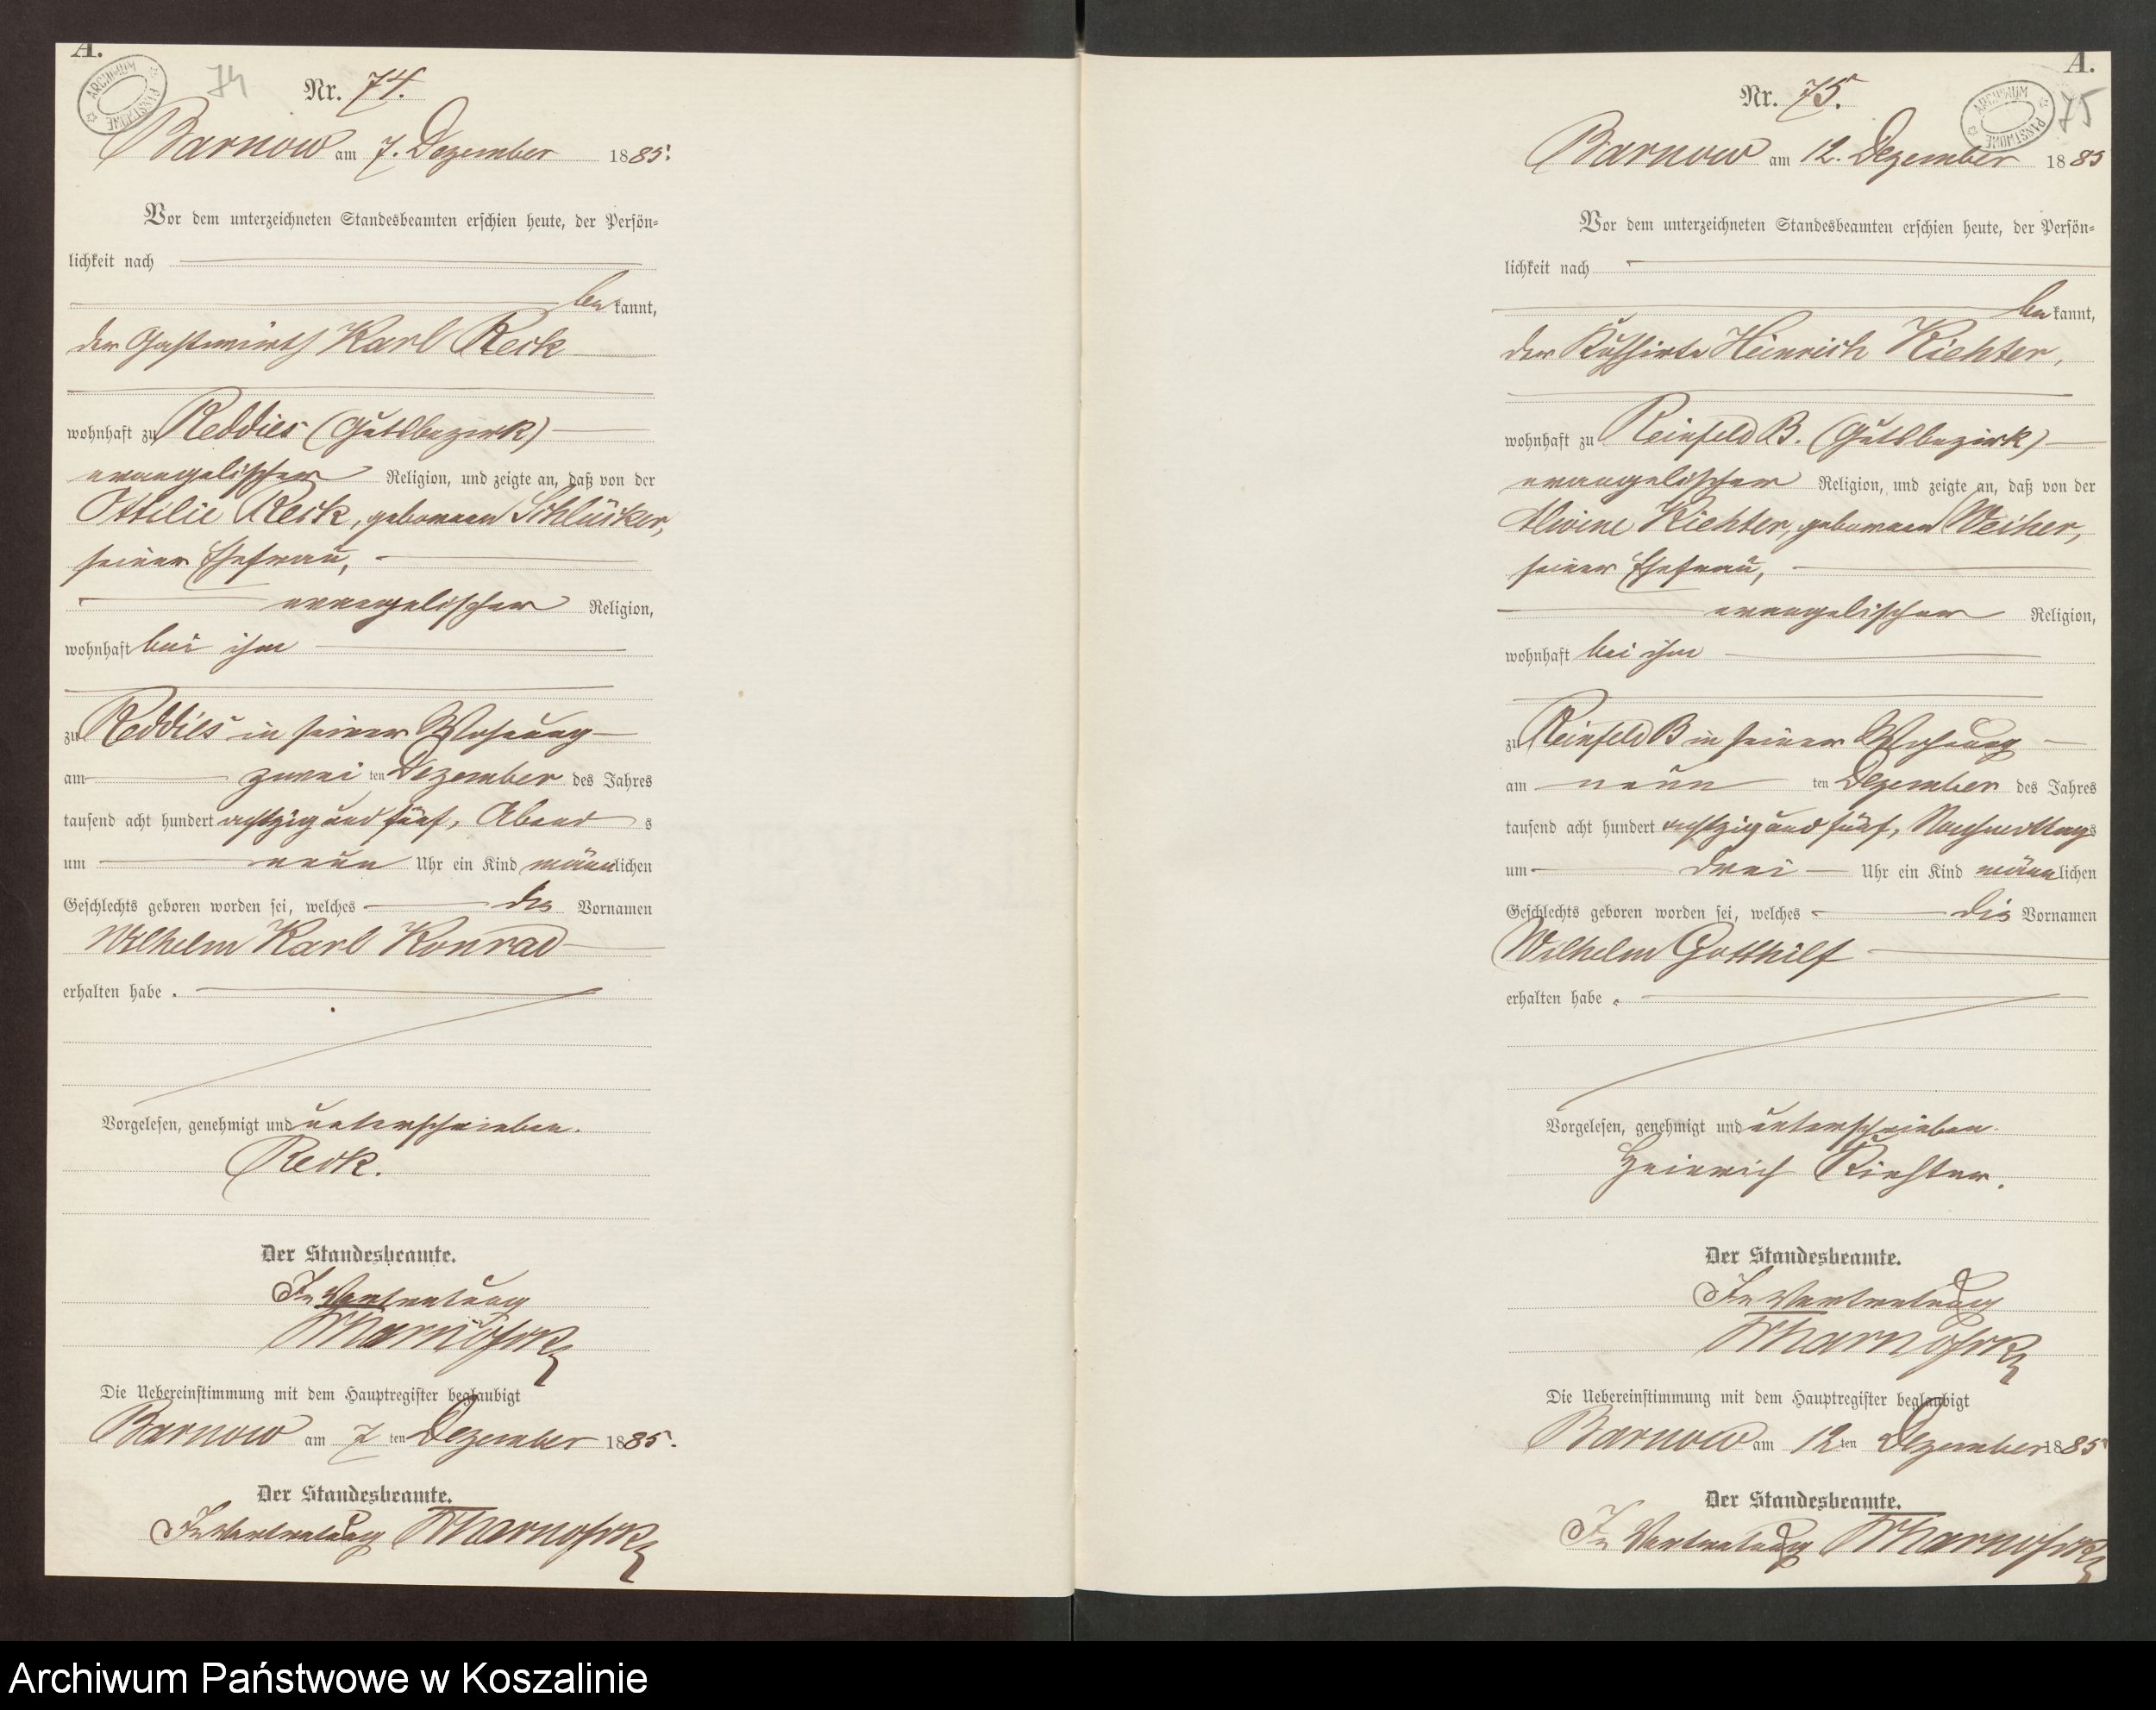 A.
ARCHIWUM PAŃSTWOWE
74
Nr. 74.
Barnow am 7. Dezember 1885.
Vor dem unterzeichneten Standesbeamten erschien heute, der Persön-
lichkeit nach
bekannt,
der Gastwirth Karl Reck
wohnhaft zu Reddies (Gutsbezirk)
evangelischer Religion, und zeigte an, daß von der
Ottilie Reck, geborenen Schlücker,
seiner Ehefrau,
evangelischer Religion,
wohnhaft bei ihm
zu Reddies in seiner Wohnung
am zwei ten Dezember des Jahres
tausend acht hundert achtzig und fünf, Abends
um neun Uhr ein Kind männlichen
Geschlechts geboren worden sei, welches die Vornamen
Wilhelm Karl Konrad
erhalten habe.
Vorgelesen, genehmigt und unterschrieben.
Reck.
Der Standesbeamte.
In Vertretung
Die Uebereinstimmung mit dem Hauptregister beglaubigt
Barnow am 7 ten Dezember 1885.
Der Standesbeamte.
In Vertretung
A.
ARCHIWUM PAŃSTWOWE
75
Nr. 75.
Barnow am 12. Dezember 1885
Vor dem unterzeichneten Standesbeamten erschien heute, der Persön-
lichkeit nach
bekannt,
der Kuhhirte Heinrich Richter,
wohnhaft zu Reinfeld B. (Gutsbezirk)
evangelischer Religion, und zeigte an, daß von der
Alwine Richter, geborenen Weiher,
seiner Ehefrau,
evangelischer Religion,
wohnhaft bei ihm
zu Reinfeld B in seiner Wohnung
am neun ten Dezember des Jahres
tausend acht hundert achtzig und fünf, Nachmittags
um drei Uhr ein Kind männlichen
Geschlechts geboren worden sei, welches die Vornamen
Wilhelm Gotthilf
erhalten habe.
Vorgelesen, genehmigt und unterschrieben.
Heinrich Richter.
Der Standesbeamte.
In Vertretung
Die Uebereinstimmung mit dem Hauptregister beglaubigt
Barnow am 12 ten Dezember 1885
Der Standesbeamte.
In Vertretung
Archiwum Państwowe w Koszalinie